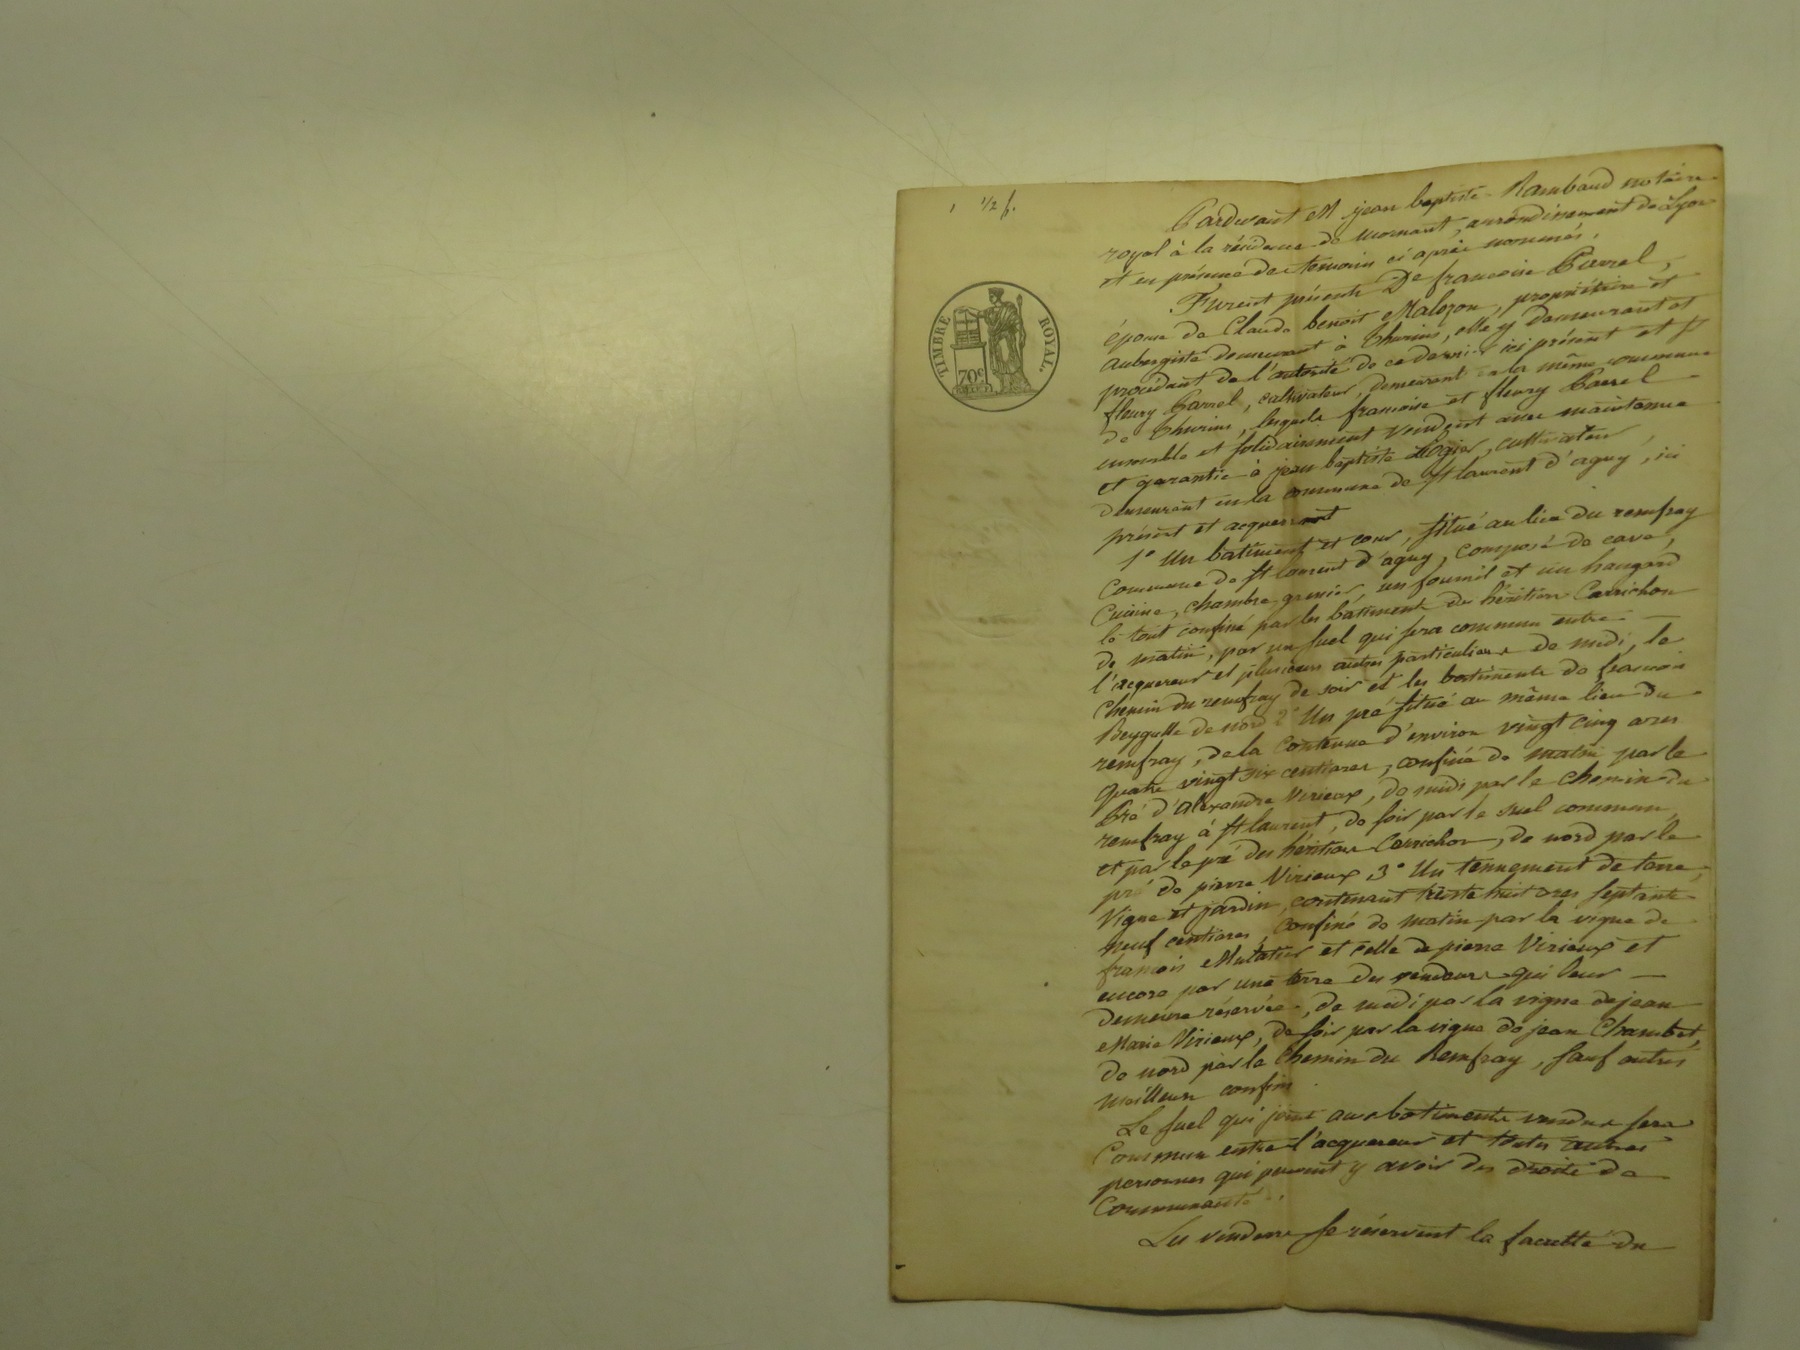 1 1/2 f.
TIMBRE ROYAL.
70c
Pardevant Me jean baptiste Rambaud notaire
royal à la résidence de Mornant, arrondissement de Lyon
et en présence des temoins ci après nommés.
Furent présents De francoise Barrel,
épouse de Claude benoit Malozon, propriétaire et
aubergiste demeurant à Thurins, elle y demeurant et
procédant de l'autorité de ce dernier ici présent et Sr
fleury Barrel, cultivateur, demeurant en la même commune
de Thurins, lesquels francoise et fleury Barrel
ensemble et solidairement vendent avec maintenue
et garantie à jean baptiste Logier, cultivateur,
demeurant en la commune de St laurent d'agny, ici
présent et acquerrant
1° Un batiment et cour, situé au lieu du remfray
Commune de St laurent d'agny, composé de cave,
Cuisine, chambre, grenier, un fournil et un hangard
le tout confiné par les batiments des héritiers Carrichon
de matin, par un suel qui sera commun entre
l'acquereur et plusieurs autres particuliers de midi, le
chemin du remfray de soir et les batiments de francois
de nord 2° Un pré situé au même lieu du
remfray, de la contenue d'environ vingt cinq ares
quatre vingt six centiares, confiné de matin par le
Pré d'Alexandre Virieux, de midi par le chemin du
remfray à St laurent, de soir par le suel commun,
et par le pré des héritiers Carrichon, de nord par le
pré de pierre Virieux, 3° Un tennement de terre,
Vigne et jardin, contenant trente huit ares septante
neuf centiares, confiné de matin par la vigne de
francois Mulatier et celle de pierre Virieux et
encore par une terre des vendeurs qui leur
demeure réservée, de midi par la vigne de jean
Marie Virieux, de soir par la vigne de jean Chambet,
de nord par le Chemin du Remfray, sauf autres
meilleurs confins.
Le suel qui joint aux batiments vendus sera
Commun entre l'acquereur et toutes autres
personnes qui peuvent y avoir des droits de
Communauté.
Les vendeurs se réservent la faculté du